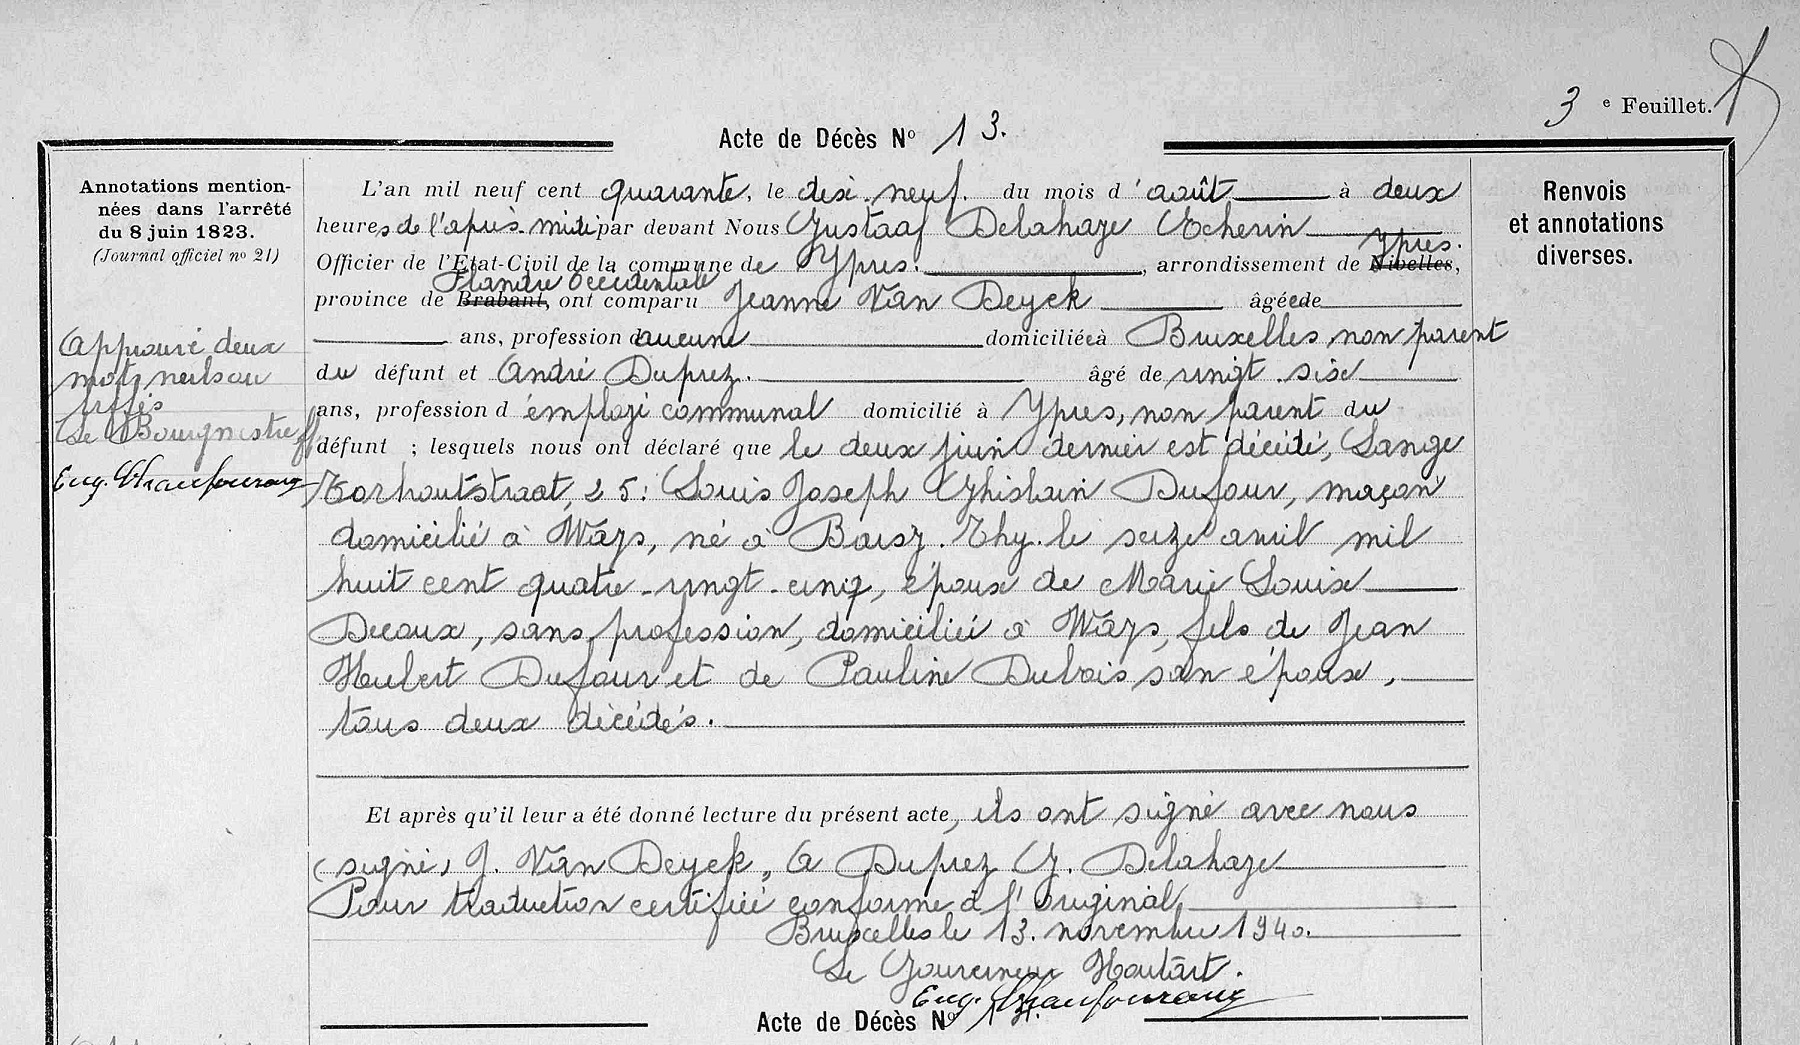 3 e Feuillet.
Acte de Décès No 13.
Annotations mention-
nées dans l'arrêté
du 8 juin 1823.
(Journal officiel no 21)
Approuvé deux
mots nuls
Le Bourgmestre ff
Eug.
L'an mil neuf cent quarante, le dix-neuf du mois d'août à deux
heures de l'après-midi par devant Nous Gustaaf Delahaye Echevin
Officier de l'Etat-Civil de la commune de Ypres. , arrondissement de Nivelles, Ypres.
province de Brabant, Flandre Occidentale ont comparu Jeanne Van Deyck âgée de
ans, profession d aucune domiciliée à Bruxelles, non parent
du défunt et André Duprez. âgé de vingt-six
ans, profession d'employé communal domicilié à Ypres, non parent du
défunt ; lesquels nous ont déclaré que le deux juin dernier est décédé, Lange
Torhoutstraat, 25: Louis Joseph Ghislain Dufour, maçon
domicilié à Ways, né à Baisy-Thy le seize avril mil
huit cent quatre-vingt-cinq, époux de Marie Louise
Decaux, sans profession, domiciliée à Ways, fils de Jean
Hubert Dufour et de Pauline Dubois son époux,
tous deux décédés.
Et après qu'il leur a été donné lecture du présent acte, ils ont signé avec nous
(signé) J. Van Deyck, A Duprez G. Delahaye
Pour traduction certifiée conforme à l'original
Bruxelles le 13. novembre 1940.
Le Gouverneur Houtart.
Eug.
Acte de Décès No 14.
Renvois
et annotations
diverses.